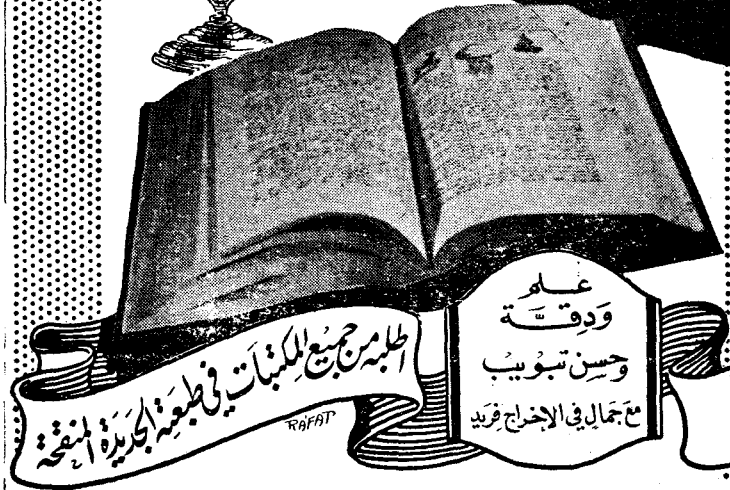 علم
وَدِقَّة
وَحسن تبويبْ
مَعَ جمَالٍ في الاخراج فريَد
اطلبه من جميع المكتبات في طبعتهِ الجديدة المنقحة
RA'FAT